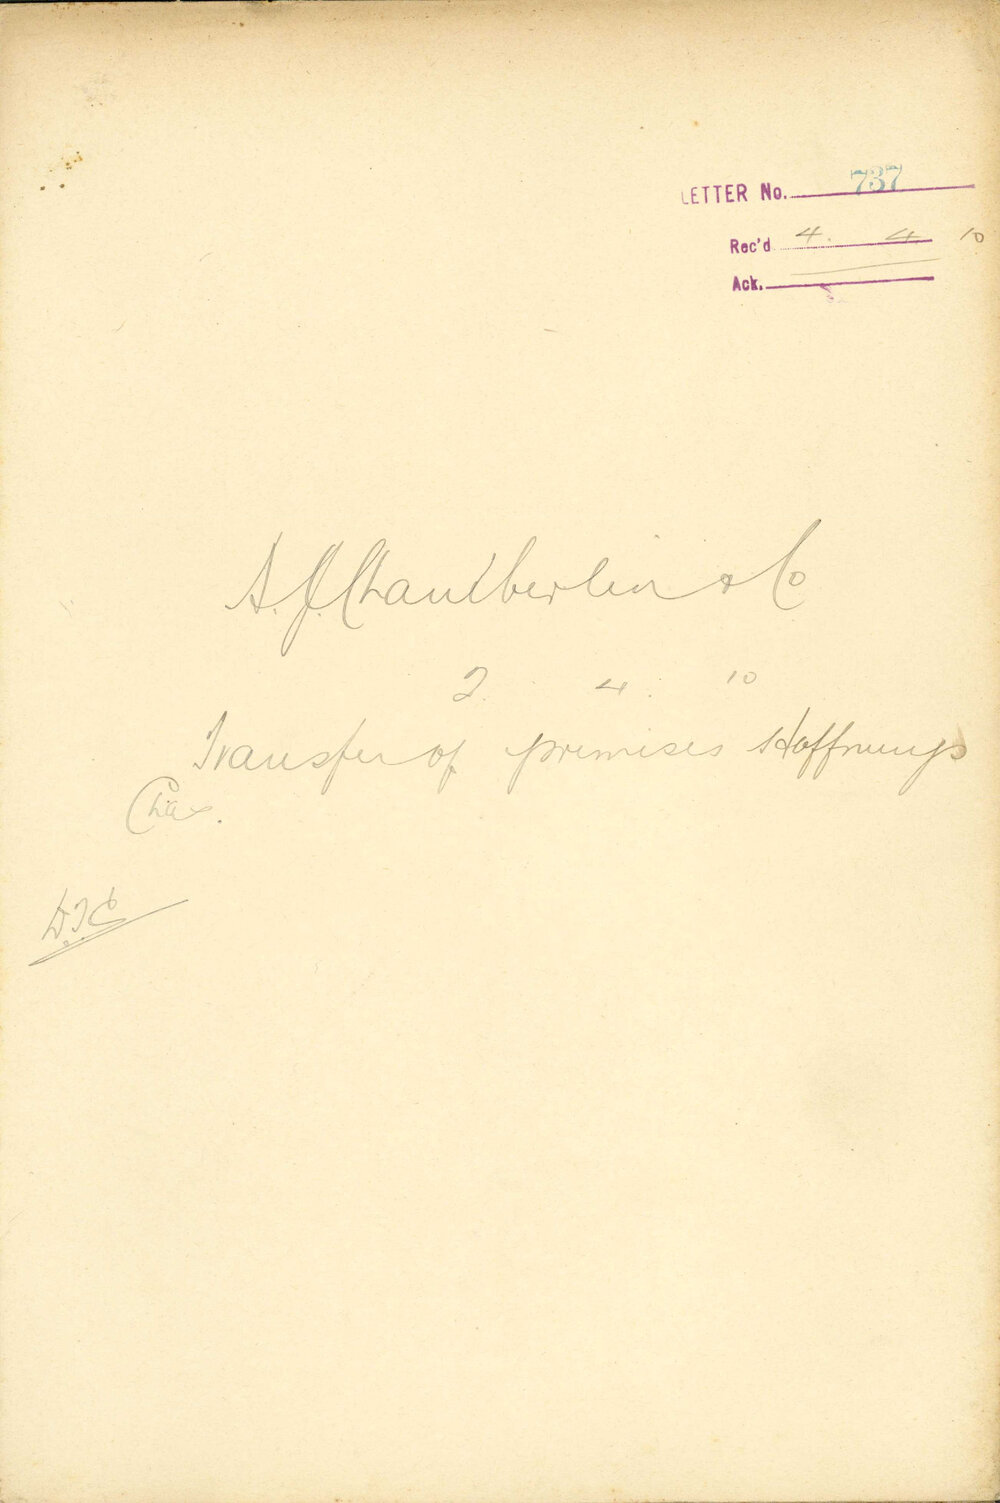 LETTER No. 737
Rec'd 4. 4 10
Ack.
A. J. Chamberlin & Co
2. 4. 10
Transfer of premises Hoffnungs